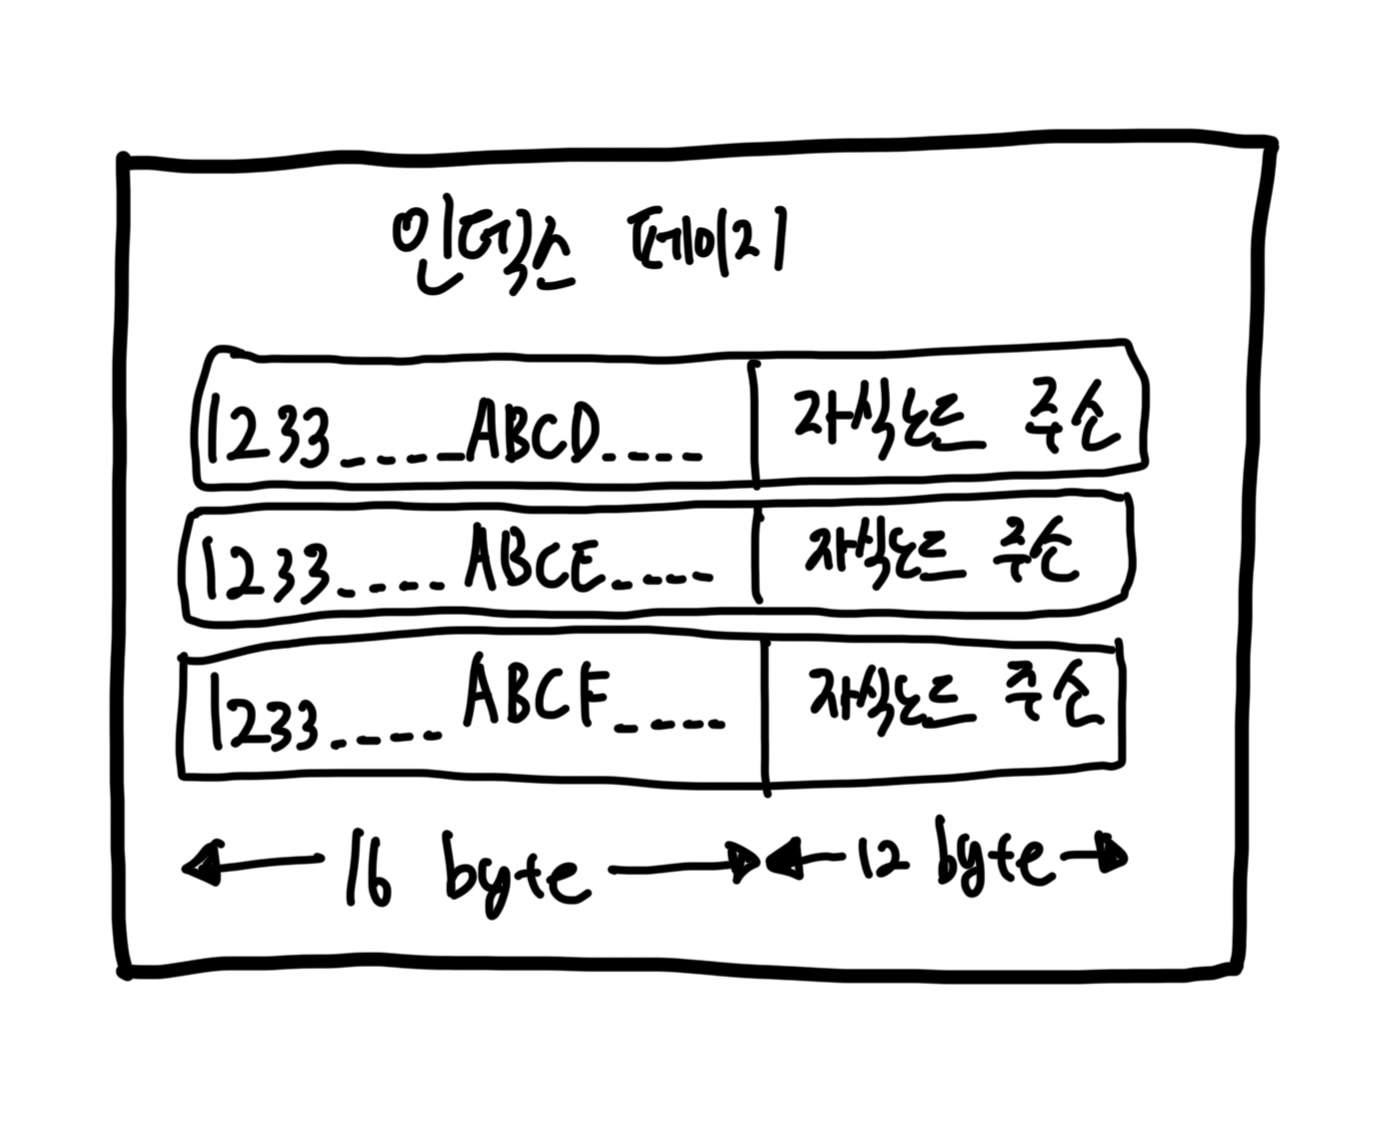 인덱스 페이지
1233____ABCD____ 자식노드 주소
1233____ABCE____ 자식노드 주소
1233____ABCF____ 자식노드 주소
16 byte 12 byte